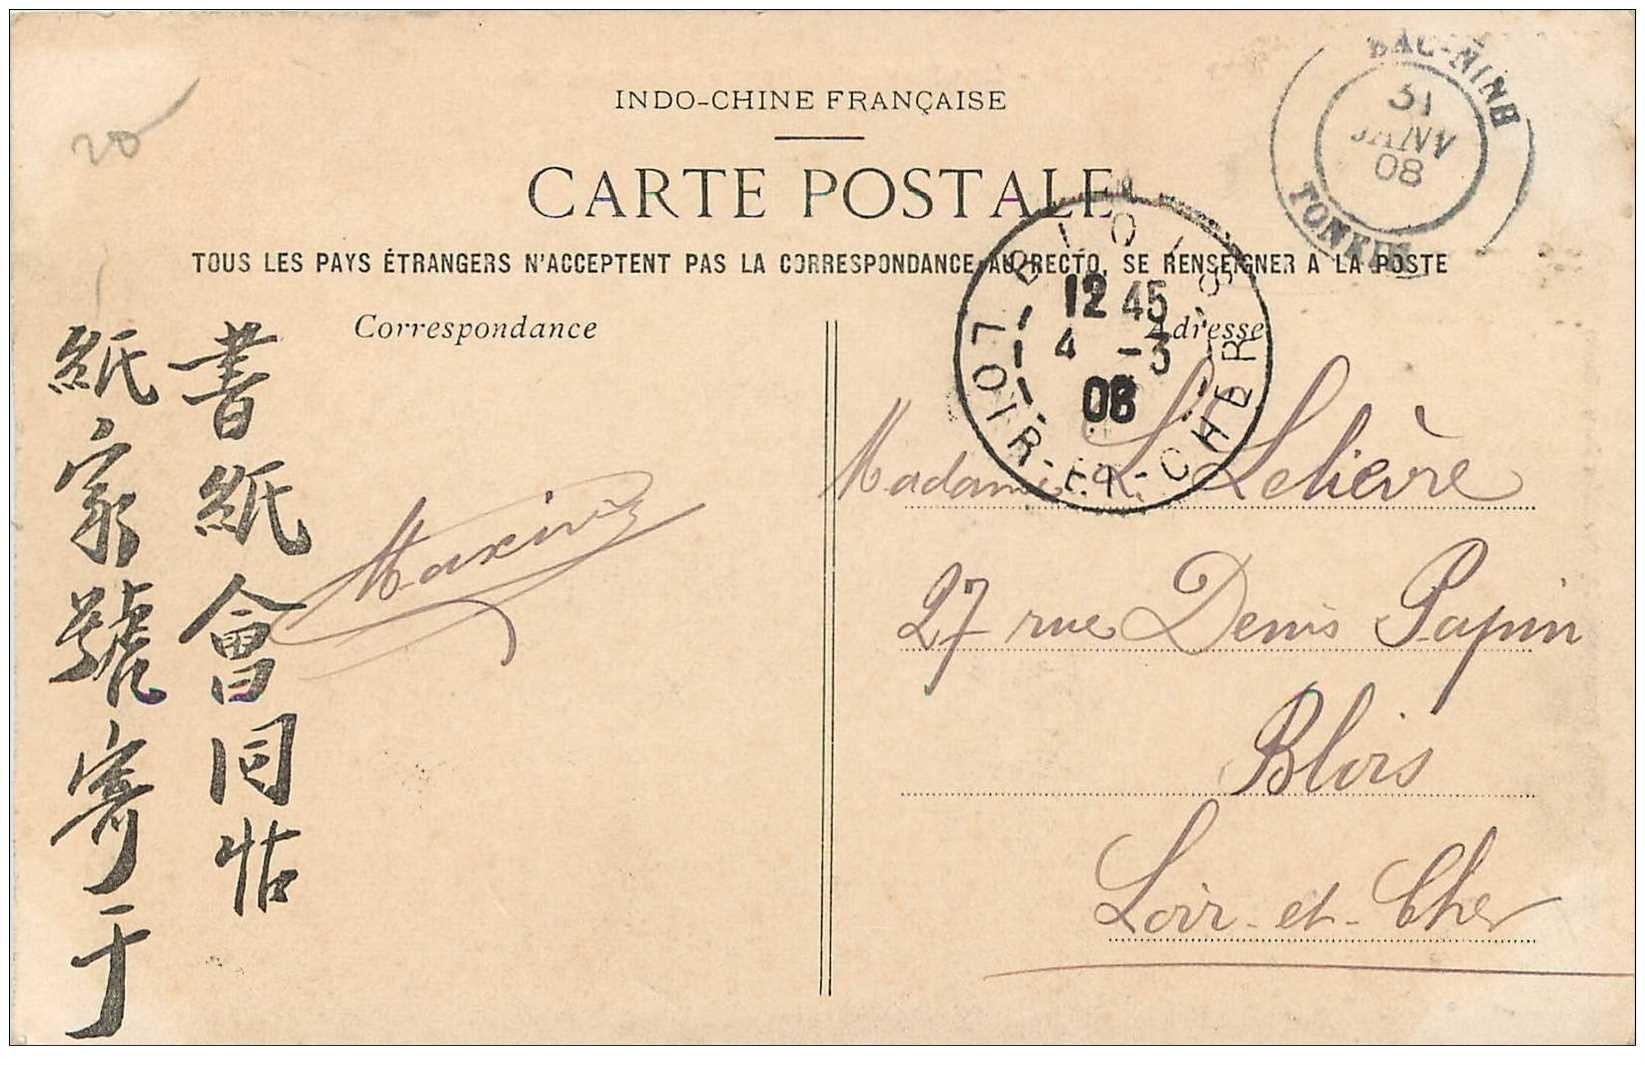 20
INDO-CHINE FRANÇAISE
CARTE POSTALE
TOUS LES PAYS ÉTRANGERS N'ACCEPTENT PAS LA CORRESPONDANCE AU RECTO, SE RENSEIGNER A LA POSTE
Correspondance
Adresse
BAC-NINH
31
JANV
08
TONKIN
BLOIS
12 45
4 -3
08
LOIR-ET-CHER
書紙會同
紙家號寄于
Madame L. Lelièvre
27 rue Denis Papin
Blois
Loir-et-Cher